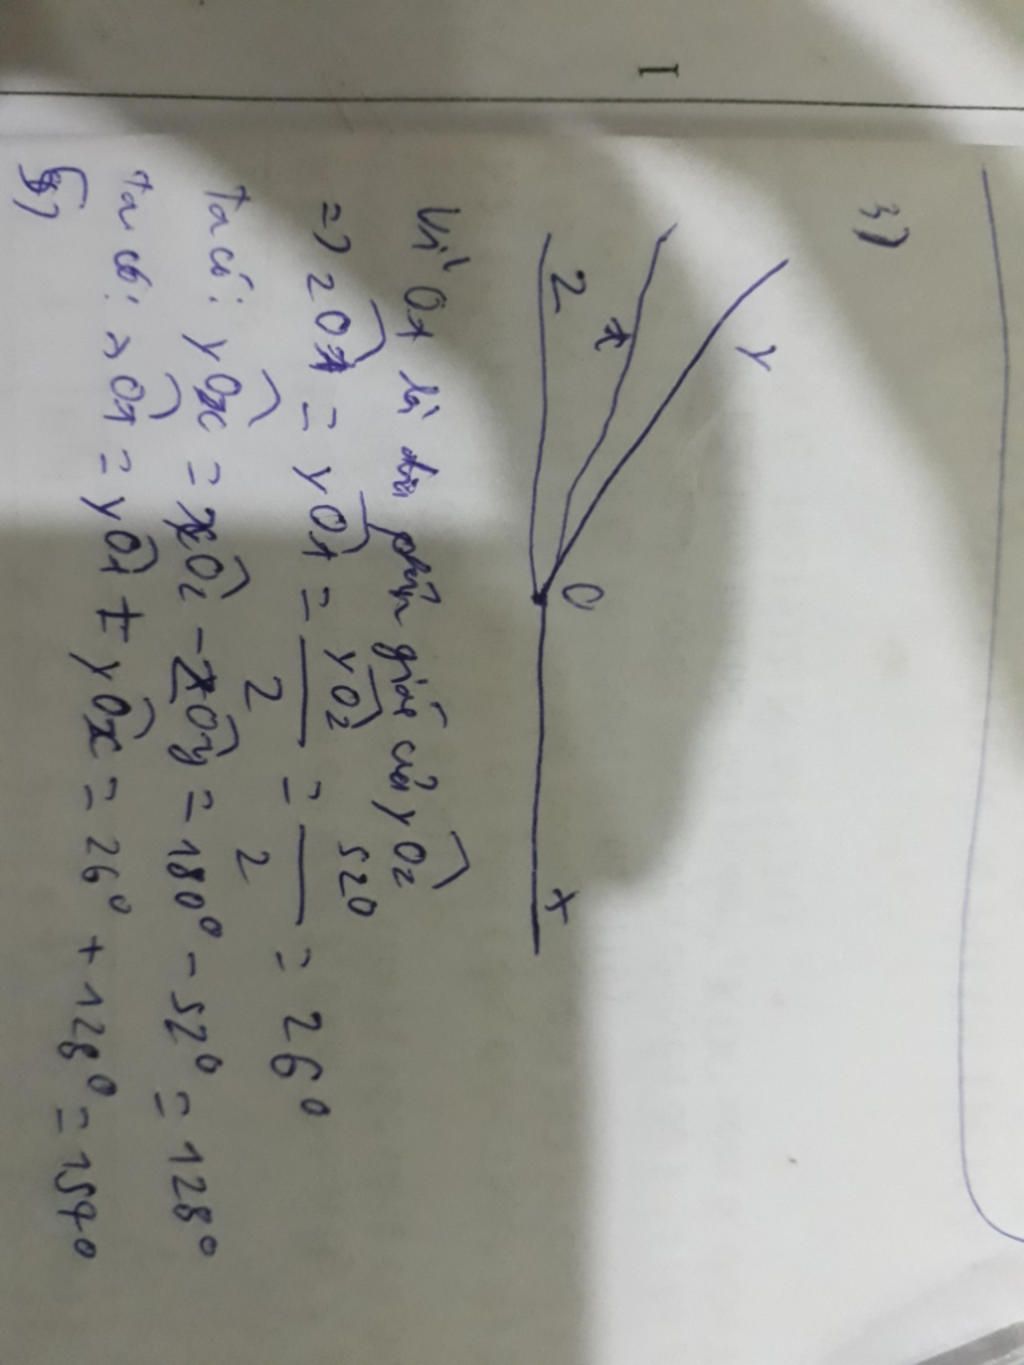 1
3)
y
t
z
O
x
Vì Ot là tia phân giác của yOz
=> zOt = yOt = yOz / 2 = 52° / 2 = 26°
Ta có: yOx = xOz - zOy = 180° - 52° = 128°
Ta có: xOt = yOt + yOx = 26° + 128° = 154°